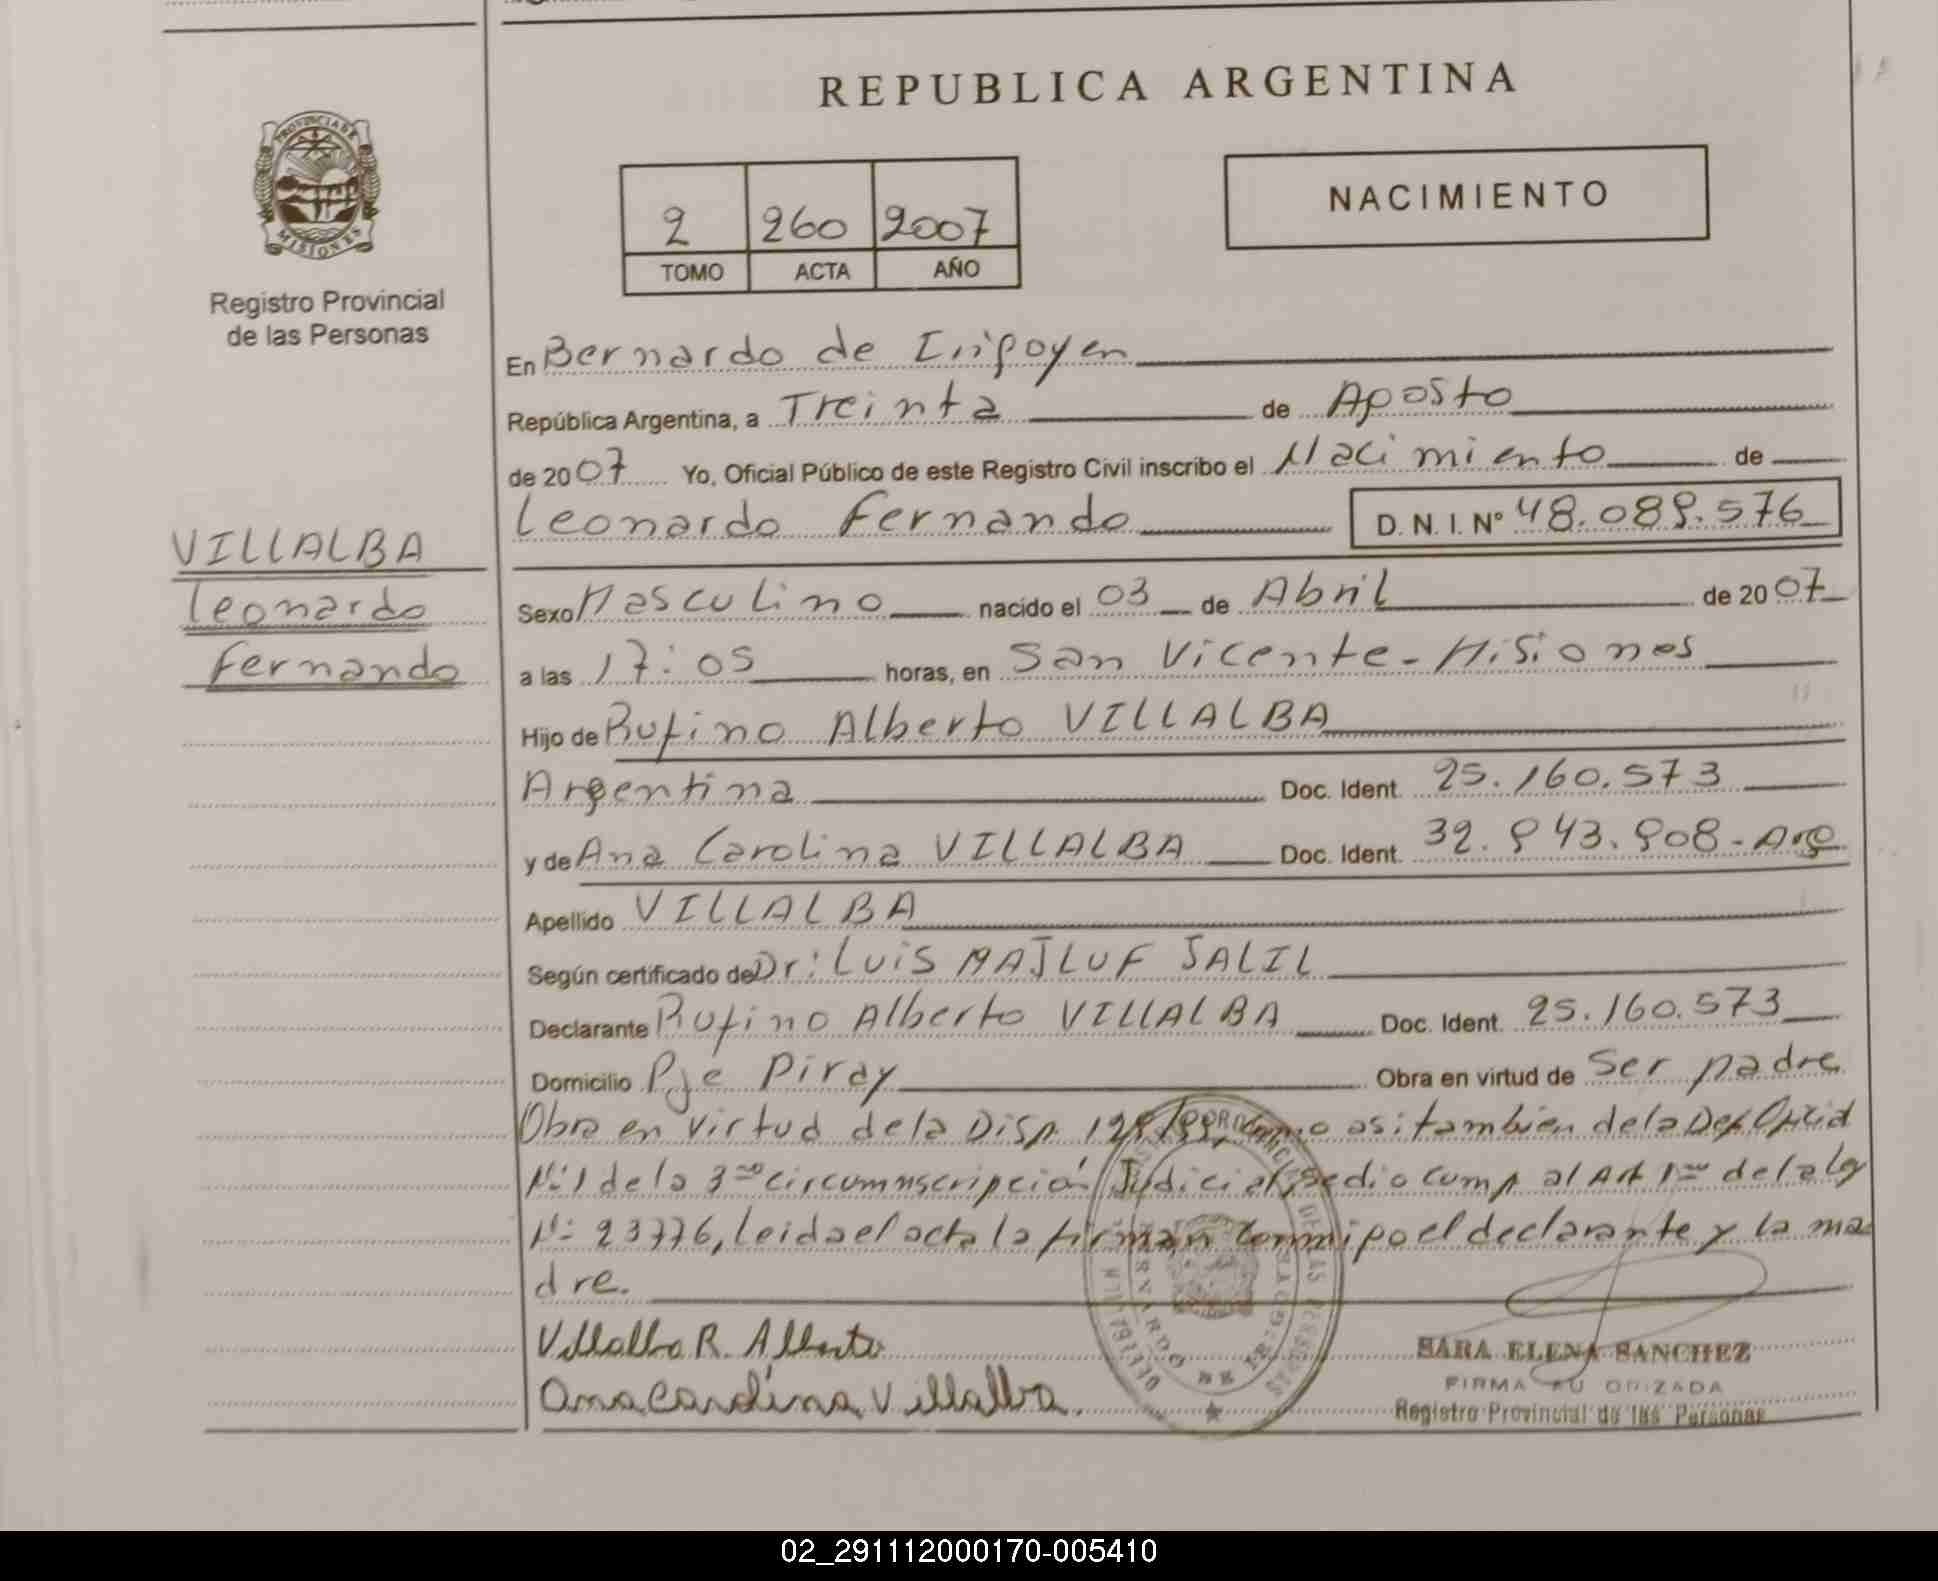 REPUBLICA ARGENTINA
PROVINCIA DE
MISIONES
Registro Provincial
de las Personas
NACIMIENTO
2 260 2007
TOMO ACTA AÑO
En Bernardo de Irigoyen
República Argentina, a Treinta de Agosto
de 2007 Yo, Oficial Público de este Registro Civil inscribo el Nacimiento de
Leonardo Fernando D. N. I. Nº 48.089.576
VILLALBA
Leonardo
Fernando
Sexo Masculino nacido el 03 de Abril de 2007
a las 17:05 horas, en San Vicente - Misiones
Hijo de Rufino Alberto VILLALBA
Argentina Doc. Ident. 25.160.573
y de Ana Carolina VILLALBA Doc. Ident. 32.943.908 - Arg
Apellido VILLALBA
Según certificado de Dr: Luis MAJLUF JALIL
Declarante Rufino Alberto VILLALBA Doc. Ident. 25.160.573
Domicilio Pje Piray Obra en virtud de Ser padre
Obra en virtud de la Disp. 129/99, como asi tambien de la Def Oficial
Nº 1 de la 3ra circumnscripción Judicial, se dio cump al Art 1ro de la ley
Nº 23776, leida el acta la firman conmigo el declarante y la ma
dre.
Villalba R. Alberto
Ana Carolina Villalba.
SARA ELENA SANCHEZ
FIRMA AUTORIZADA
Registro Provincial de las Personas
02_291112000170-005410